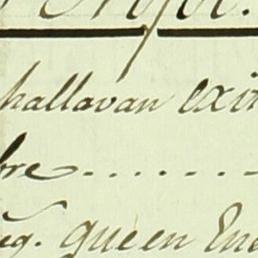 hallavan exin
bre........
ag. queen Ene